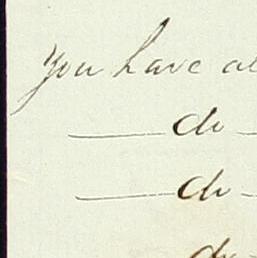 You have al
do
do
do